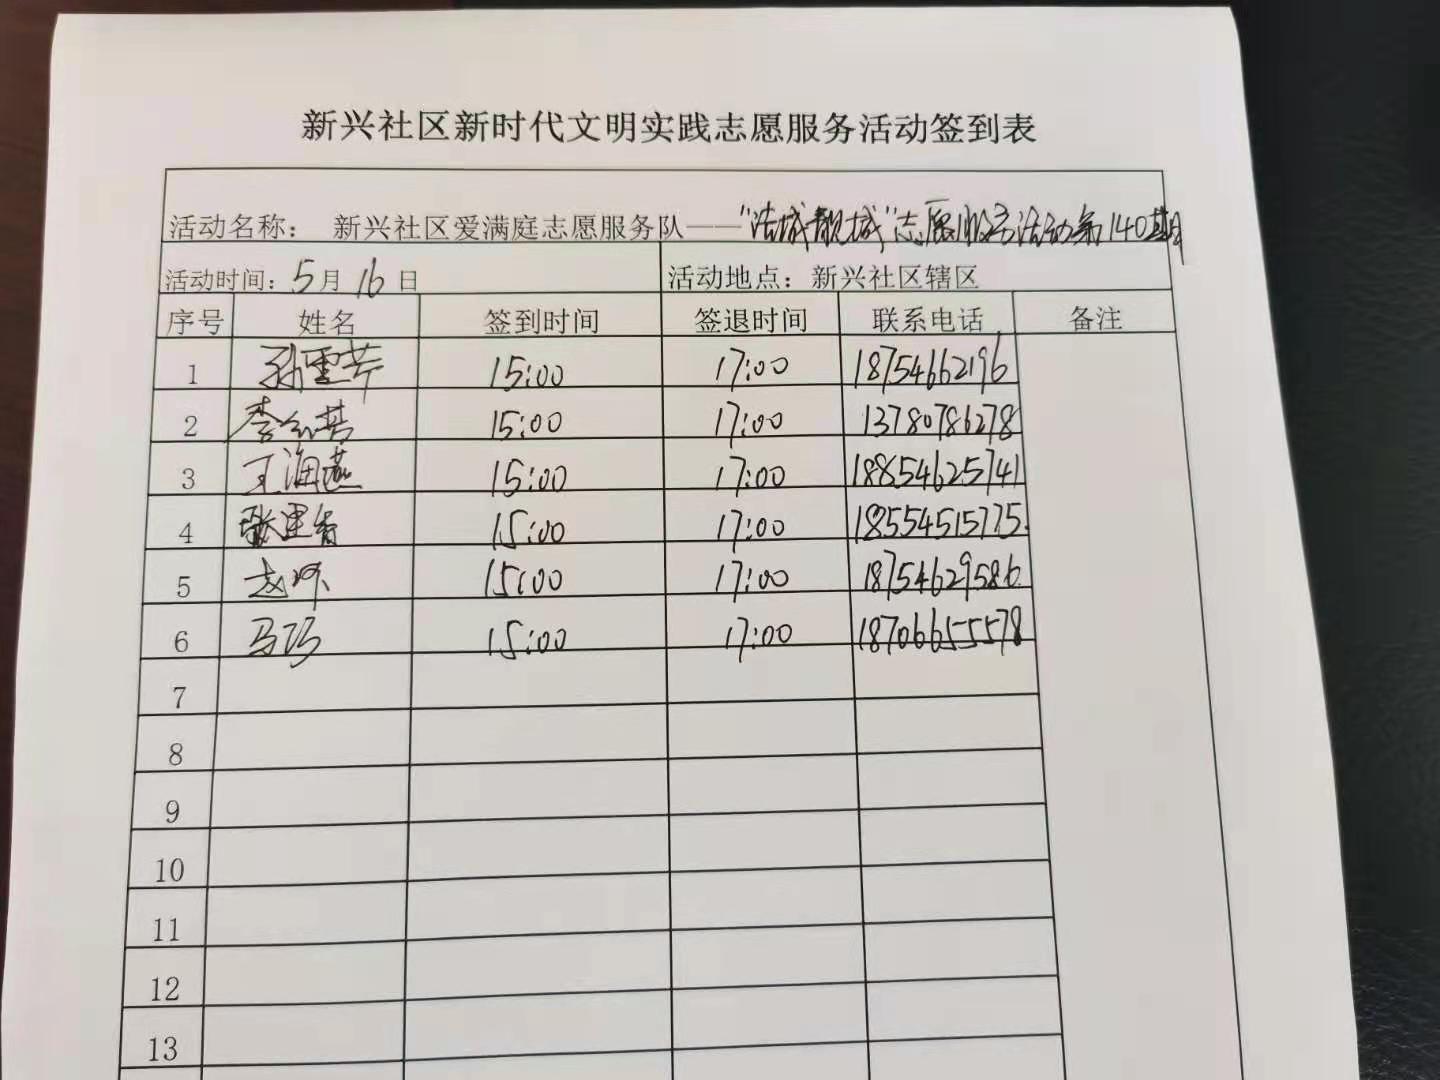 新兴社区新时代文明实践志愿服务活动签到表
活动名称： 新兴社区爱满庭志愿服务队——“洁城靓城”志愿服务活动第140期
活动时间：5月16日 活动地点：新兴社区辖区
序号 姓名 签到时间 签退时间 联系电话 备注
1 孙雪芹 15:00 17:00 18754662196
2 李 15:00 17:00 13780786278
3 王海燕 15:00 17:00 18854625741
4 张 15:00 17:00 18554515775
5 赵 15:00 17:00 18754629586
6 马巧 15:00 17:00 18706655578
7
8
9
10
11
12
13